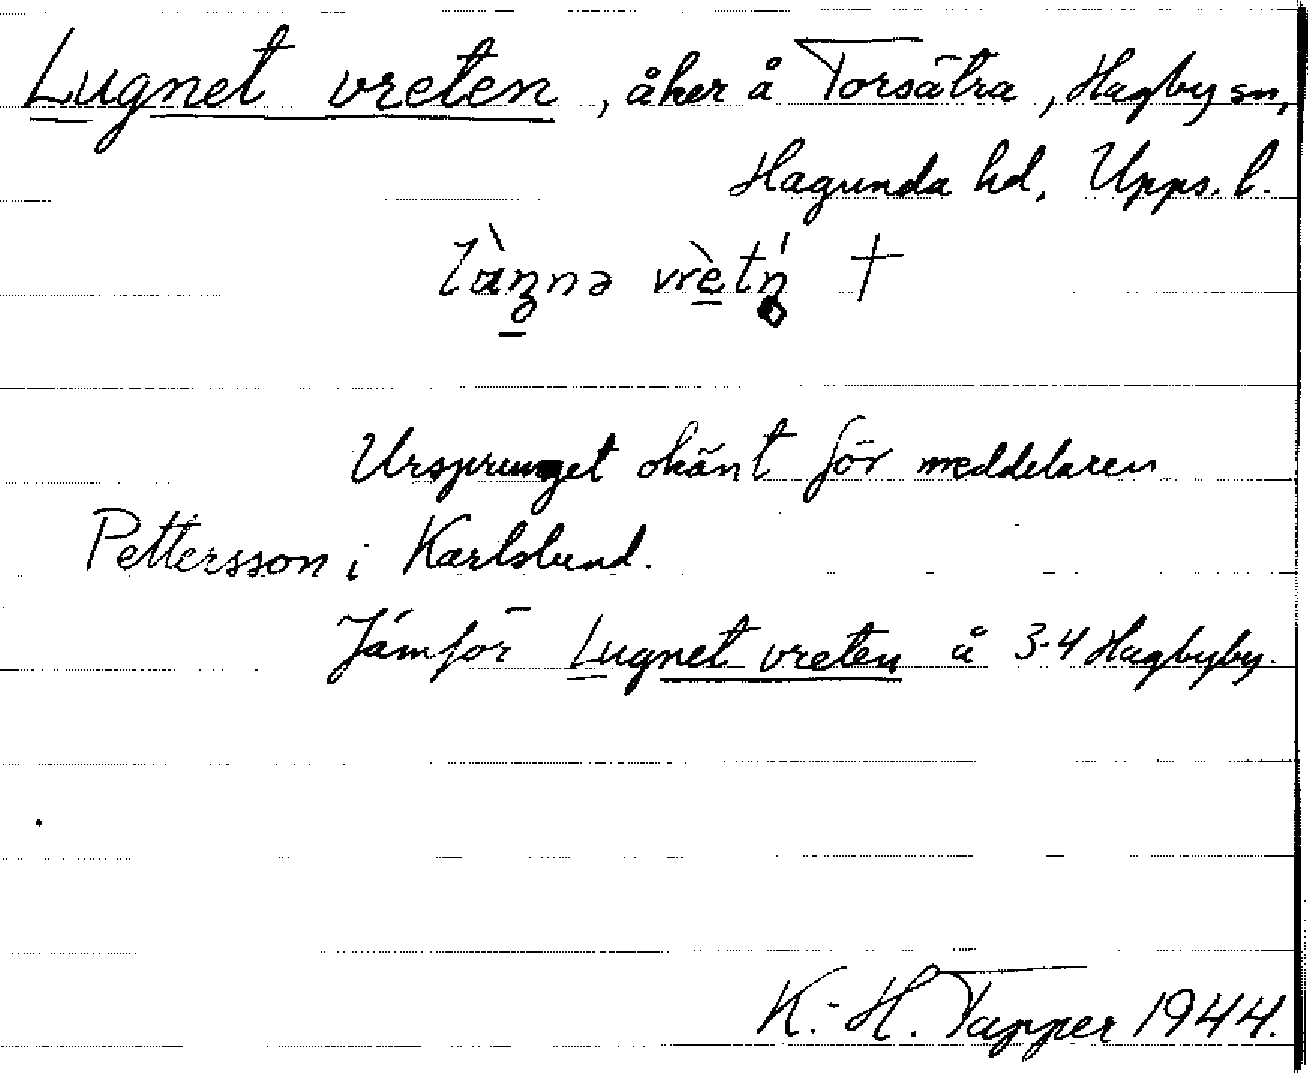 Lugnet vreten, åker å Torsätra, Hagby sn,
Hagunda hd, Upps. l.
vrètń †
Ursprunget okänt för meddelaren
Pettersson i Karlslund.
Jämför Lugnet vreten å 3-4 Hagbyby.
K.-H. Tapper 1944.